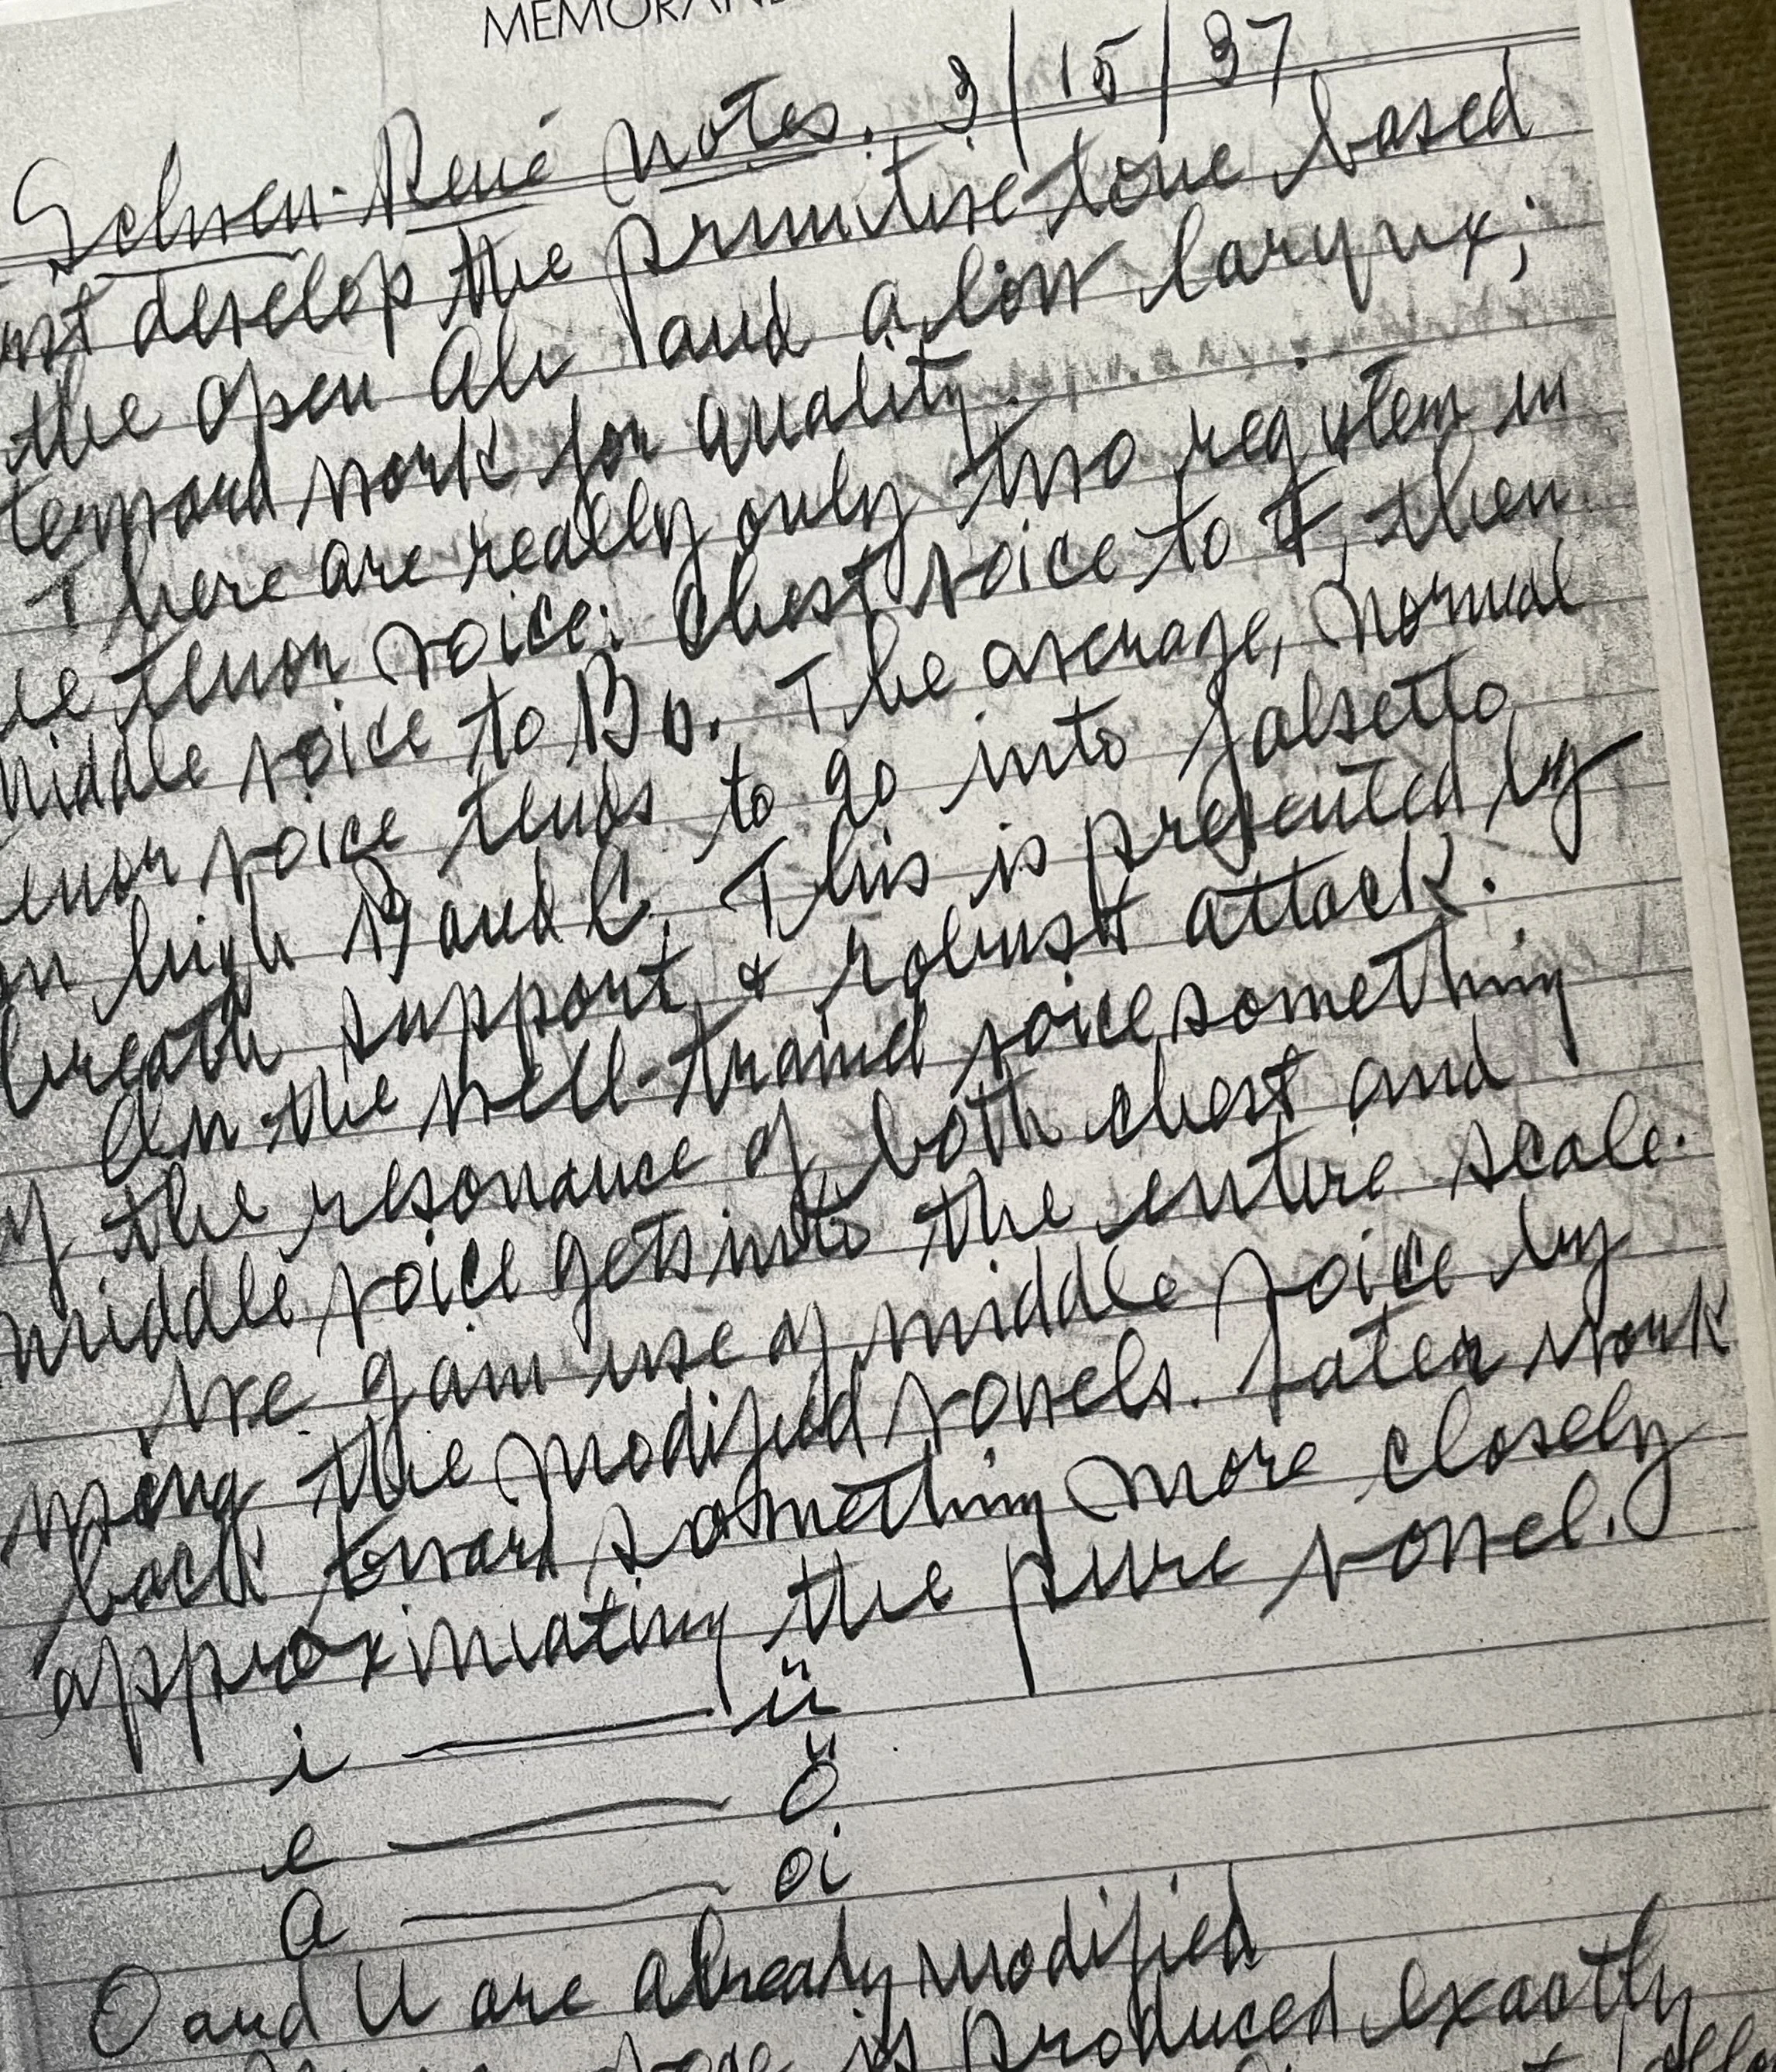 MEMORAN
Schoen-René Notes. 3/15/37
develop the primitive tone based
the open Ah and a low larynx;
work for quality.
There are really only two registers in
tenor voice: Chest voice to F, then
middle voice to Bb. The average, normal
voice tends to go into falsetto
high B and C. This is prevented by
breath support & robust attack.
In the well-trained voice something
the resonance of both chest and
middle voice gets into the entire scale.
We gain use of middle voice by
using the modified vowels. Later work
back toward something more closely
approximating the pure vowel.
i — ü
e — ö
a — oi
O and U are already modified
is produced exactly